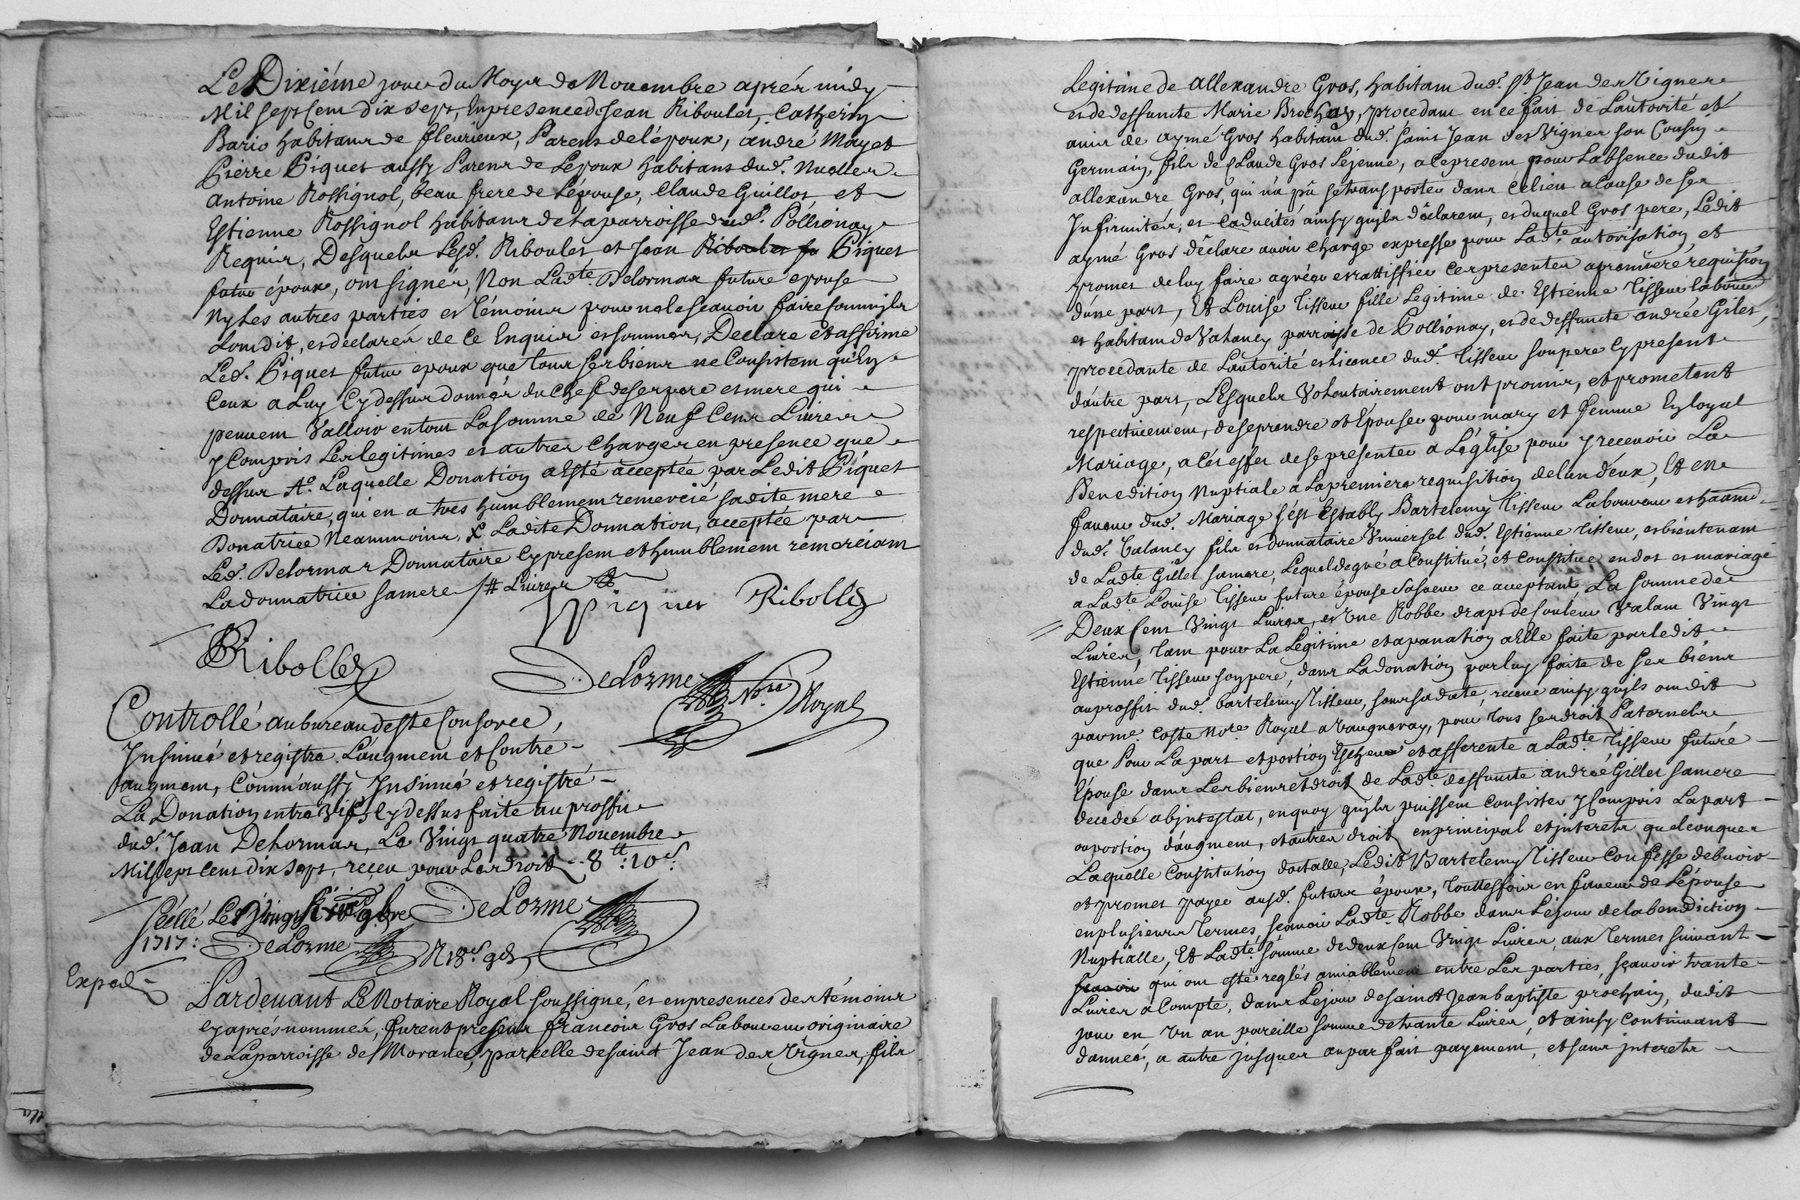 Le Dixiéme jour du Moyr de Novembre aprér midy
Mil sept Cent dix sept, En presence de Jean Riboulet, Catherin
Bario habitans de fleurieux, Parens de lépoux, andré Mayet
Pierre Piquet aussy Parens de Lepoux habitans dud.
Antoine Rossignol, beau frere de Lépouse, Claude Guillot, et
Estienne Rossignol habitans de La parroisse dud. Pollionay
Requis, Desquels Lesd. Riboulet et Jean Riboulet fu Piquet
futur époux, ont signés, Non Lad.te Delormas future epouse
Ny Les autres parties et témoins pour ne le scauoir faire comm'ils
Lont dit, et declarés de ce Enquis et sommés, Declare et affirme
Led. Piquet futur epoux que tous ses biens ne Consistent qu'En
Ceux a Luy Cy dessus donnés du chef de ses pere et mere qui
peuuent Valloir en tout La somme de Neuf Cens Liures
y Compris Les legitimes et autres charges en presence que
dessus Laquelle Donation a Esté acceptée par Ledit Piquet
Donnataire, qui en a tres humblement remercié sadite mere
Donatrice Neammoins, Ladite Donnation, acceptée par
Led. Delormas Donnataire Cy present et humblement remerciant
La donnatrice sa mere Liures
Piquet Ribollet
Ribollet
DeLorme No.re Royal
Controllé au bureau de ste Consorce,
Insinué et registré L'augment et Contre
augment, Comm'aussy Insinué et registré
La Donation entre Vifs, Cy dessus faite au proffit
dud. Jean Delormas, Le Vingt quatre Novembre
Mil sept cent dix sept, receu pour Les droits 8 tt : 10 s.
Scellé Le 9bre DeLorme
1717: DeLorme
Exped.
Pardeuant Le Notaire Royal soussigné, et en presences des témoins
Cy aprés nommés, furent presens francois Gros Laboureur originaire
de La parroisse de Morancé, parcelle de saint Jean des Vignes, fils
Legitime de allexandre Gros, habitant dud. St. Jean des Vignes
et de deffuncte Marie Brochay, procedant en ce fait de Lautorité et
auis de aymé Gros habitant dud. saint Jean des Vignes son Cousin
Germain, fils de Claude Gros Lejeune, a ce present pour Labsence dudit
allexandre Gros, qui n'a pû se transporter dans ce lieu a cause de ses
Infirmités, et Caducités ainsy qu'ils déclarent, et duquel Gros pere, Ledit
aymé Gros déclare auoir charge expresse pour Lad.te autorisation, et
promet de luy faire agréer et rattiffier Ces presentes a premiere requisition
dune part, Et Louise Tisseur fille Legitime de Estienne Tisseur laboureur
et habitant de parroisse de Pollionay, et de deffuncte andrée Gilet,
procedante de Lautorité et licence dud. Tisseur son pere Cy present
dautre part, Lesquels Volontairement ont promis, et prometent
respectiuement, de se prendre et Epouser pour mary et femme En loyal
Mariage, a Cét effet de se presenter a Léglise pour y receuoir La
Benedition Nuptiale a La premiere requisition de lun d'eux, Et en
faueur dud. Mariage s'est Estably Bartelemy Tisseur Laboureur et habitant
dud. fils et donnataire Vniuersel dud. Estienne Tisseur, et bientenant
de Ladte Gillet sa mere, Lequel de gré a constitué, et Constitue en dot et mariage
a Ladte Louise Tisseur future épouse sa soeur ce aceptant La somme de
Deux Cent Vingt Liures, et Vne Robbe drapt de souleur Valant Vingt
Liures, tant pour La Legitime et apanation a Elle faite par ledit
Estienne Tisseur son pere, dans La donation par luy faite de ses biens
au proffit dud. bartelemy Tisseur, sous sa date, receue ainsy qu'ils ont dit
par me. Coste Note. Royal a Vaugneray, pour tous ses droits Paternels
que Pour La part et portion Escheue et afferente a Ladte. Tisseur future
Epouse dans Les biens et droits de Ladte. deffuncte andrée Gillet sa mere
decedée abjntestat, en quoy qu'ils puissent consister y Compris La part
ou portion d'augment, et autres droits en principal et jnterets quelconques
Laquelle Constitution dotalle, Ledit Bartelemy Tisseur Confesse debuoir
et promet payer ausd. futurs époux, touttesfois en faueur de Lépouse
en plusieurs termes, scauoir Ladte. Robbe dans Lejour de la bendiction
Nuptialle, Et Ladte. somme de deux cent Vingt Liures, aux termes suiuant
scauoir qui ont esté reglés amiablement entre Les parties, scauoir trante
Liures a Compte, dans Le jour de saint Jean baptiste prochain, dudit
jour en Vn an pareille somme de trante Liures, et ainsy continuant
dannée, a autre jusques au parfait payement, et sans jnterets